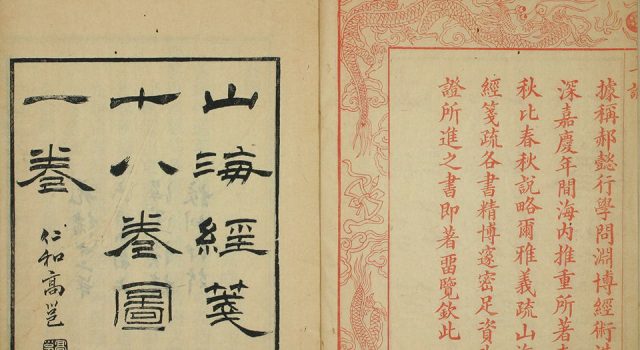 據稱郝懿行學問淵博經術
深嘉慶年間海內推重所著
秋比春秋說略爾雅義疏山海
經箋疏各書精博邃密足資
證所進之書即著畱覽欽此
山海經箋
十八卷圖
一卷
仁和高邕